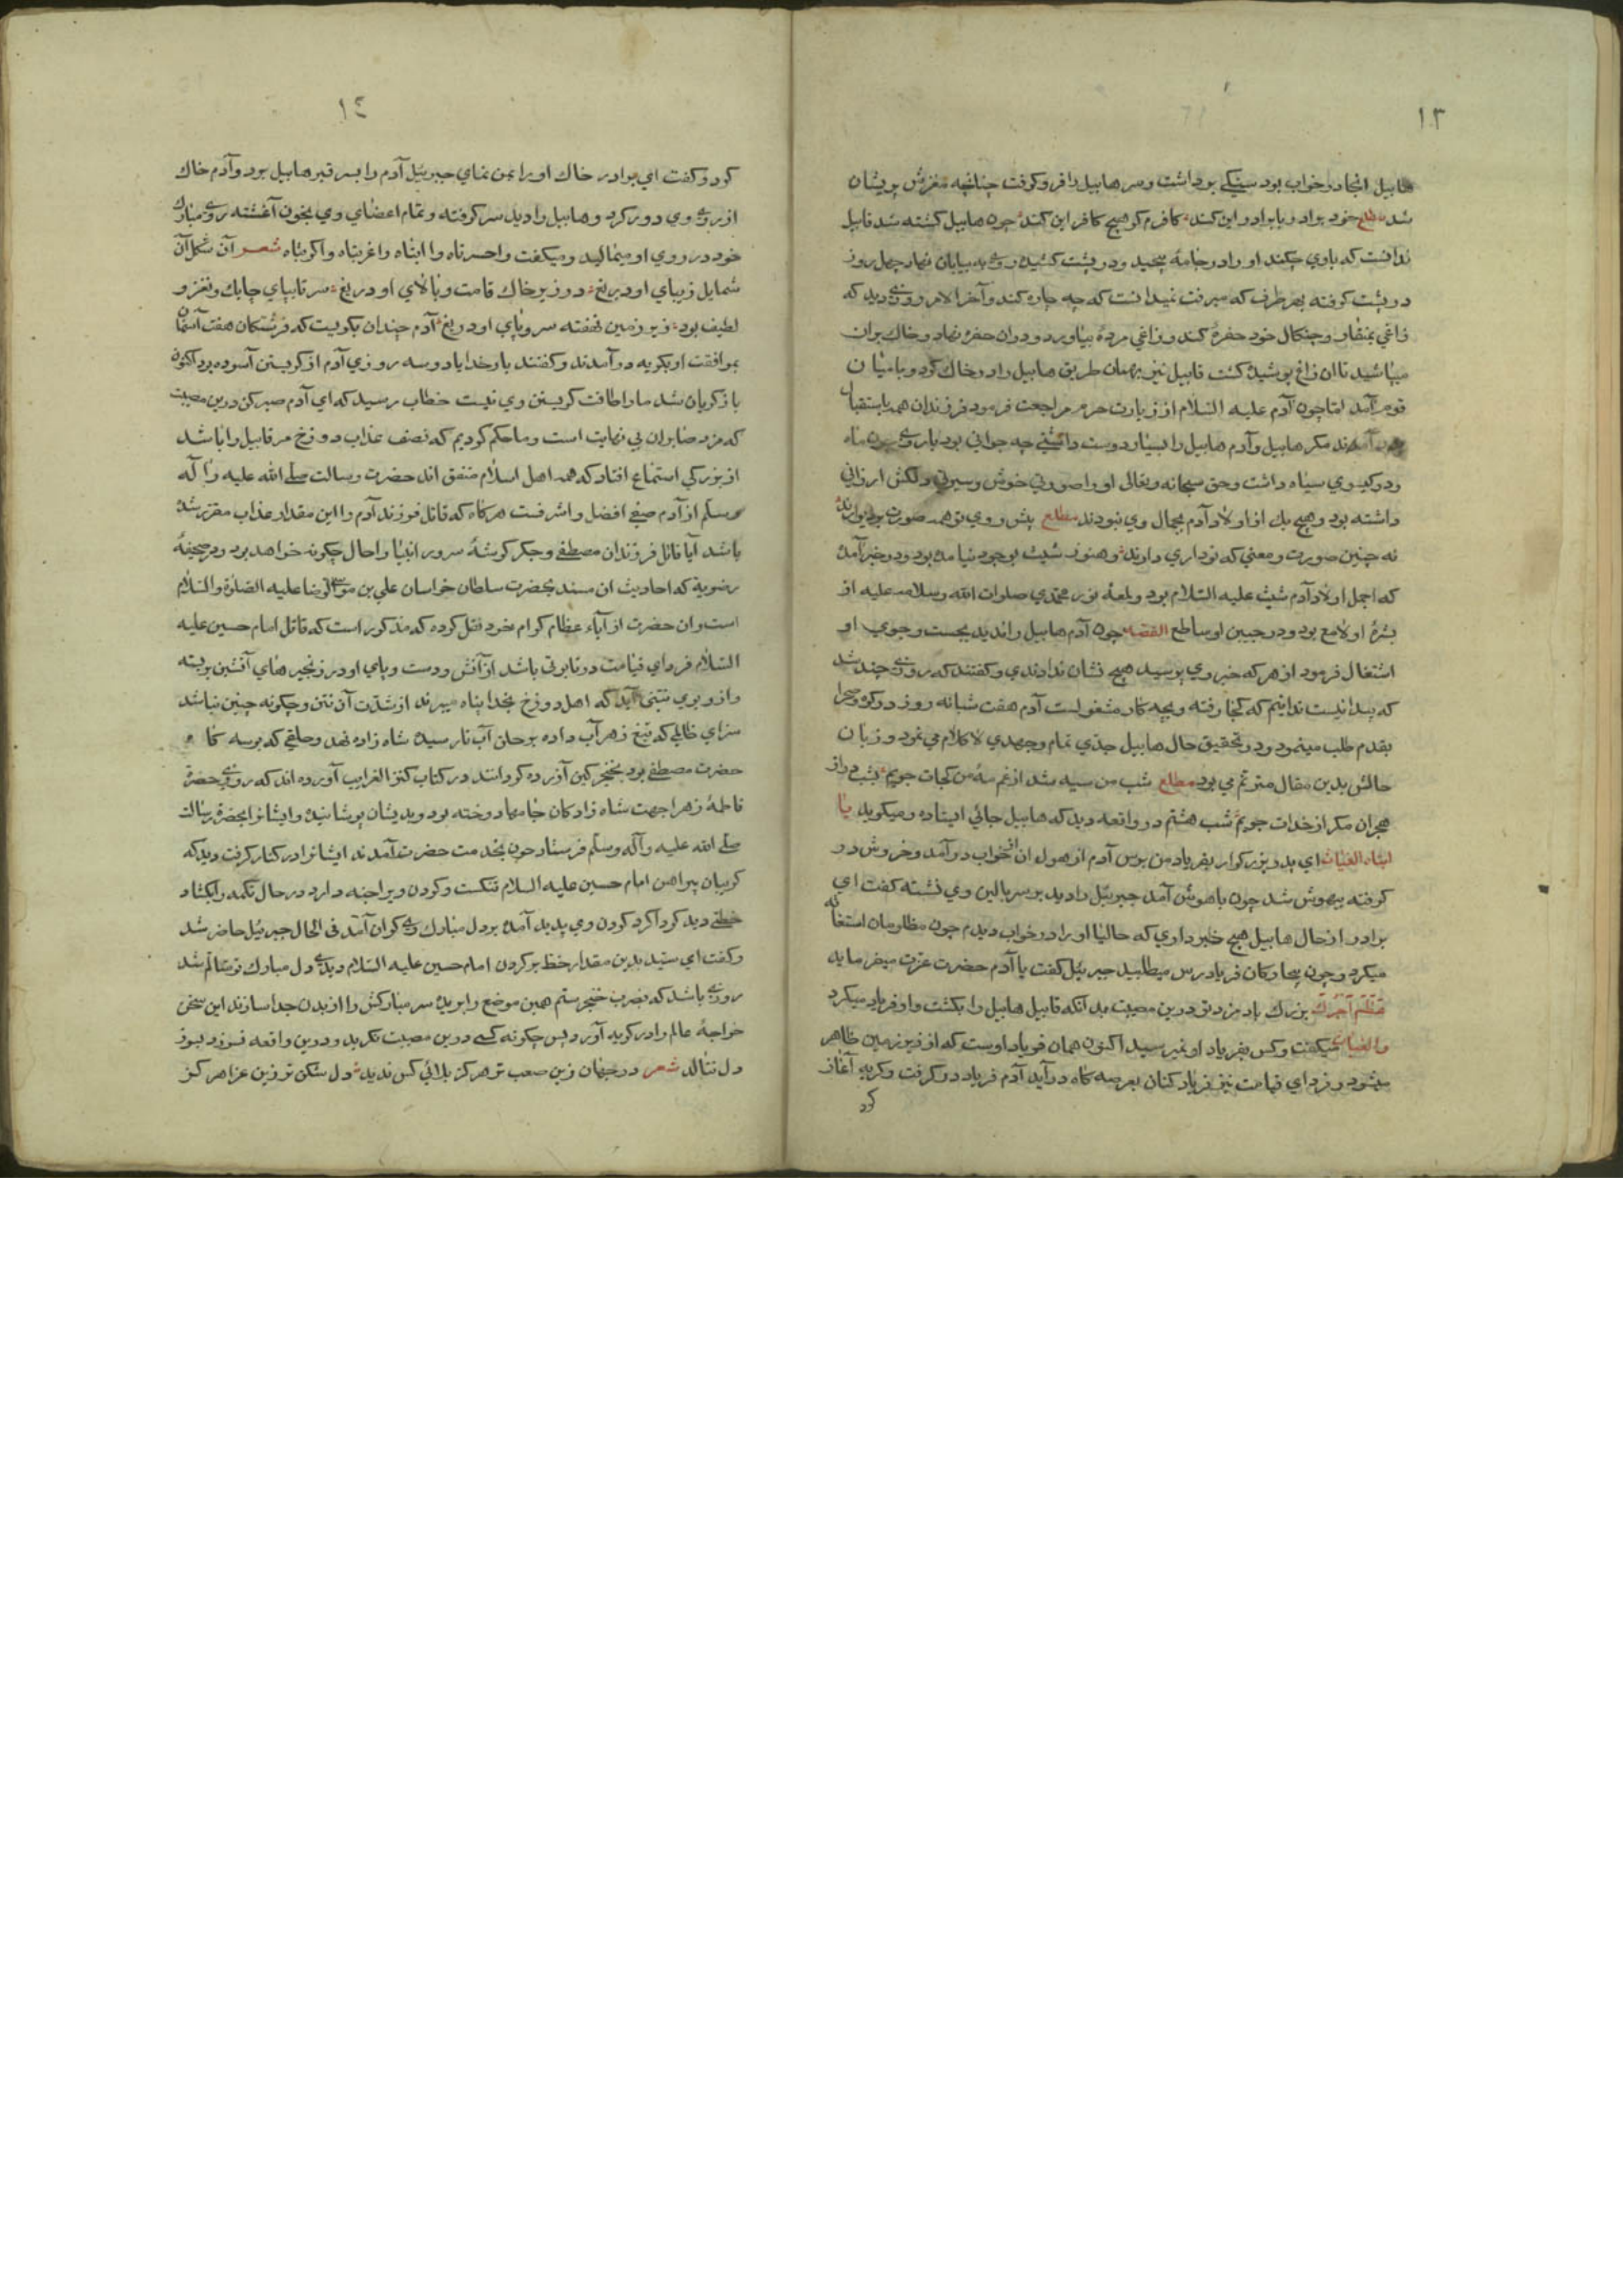 ١٣
هابیل انجا در خواب بود سنکی برداشت و سر هابیل را فرو کوفت چنانچه مغزش پریشان
شد مطلع خود برادر با برادر این کند کافرم کر هیچ کافر این کند چون هابیل کشته شد قابیل
ندانست که باوی چکند او را در جامهٔ پیچید و در پشت کشیده روی به بیابان نهاد چهل روز
در پشت کرفته بهر طرف که میرفت نمیدانست که چه چاره کند و آخر الامر روزی دید که
زاغی بمنقار و چنکال خود حفرهٔ کند و زاغی مردهٔ بیاورد و در ان حفره نهاد و خاک بران
میپاشید تا ان زاغ پوشیده کشت قابیل نیز بهمان طریق هابیل را در خاک کرد و با میان
قوم آمد امّا چون آدم علیه السّلام از زیارت حرم مراجعت فرمود فرزندان همه باستقبال
آمدند مکر هابیل و آدم هابیل را بسیار دوست داشتی چه جوانی بود با روی چون ماه
و دو کیسوی سیاه داشت و حق سبحانه و تعالی او را صورتی خوش و سیرتی دلکش ارزانی
داشته بود و هیچ یک از اولاد آدم بجمال وی نبودند مطلع پیش روی تو همه صورت بر دیوارند
نه چنین صورت و معنی که تو داری دارند و هنوز شیث بوجود نیامده بود و در خبر آمده
که اجمل اولاد آدم شیث علیه السّلام بود و لمعهٔ نور محمّدی صلوات الله و سلامه علیه از
بشرهٔ او لامع بود و در جبین او ساطع القصه چون آدم هابیل را ندید بجست و جوی او
اشتغال فرمود از هر که خبر وی پرسید هیچ نشان ندادندی و کفتند که روزی چند شد
که پیدا نیست ندانیم که کجا رفته و بچه کار مشغولست آدم هفت شبانه روز در کوه و صحرا
بقدم طلب مینمود و در تحقیق حال هابیل جدّی تمام و جهدی لا کلام می نمود و زبان
حالش بدین مقال مترنّم می بود مطلع شب من سیه شد از غم مه من کجات جویم بشب دراز
هجران مکر از خدات جویم شب هشتم در واقعه دید که هابیل جائی ایستاده و میکوید یا
ابتاه الغیاث ای پدر بزرکوار بفریاد من برس آدم از هول ان خواب در آمد و خروش در
کرفته بیهوش شد چون با هوش آمد جبرئیل را دید بر سر بالین وی نشسته کفت ای
برادر از حال هابیل هیچ خبر داری که حالیا او را در خواب دیدم چون مظلومان استغاثه
میکرد و چون بیچارکان فریادرس میطلبید جبرئیل کفت یا آدم حضرت عزت میفرماید
عظّم اجرک بزرک باد مزد تو درین مصیبت بدانکه قابیل هابیل را بکشت و او فریاد میکرد
والغیاث میکفت و کس بفریاد او نمیرسید اکنون همان فریاد اوست که از زیر زمین ظاهر
میشود و فردای قیامت نیز فریاد کنان بعرصه کاه در آید آدم فریاد در کرفت و کریه آغاز
کرد
١٤
کرد و کفت ای برادر خاک او را بمن نمای جبرئیل آدم را بسر قبر هابیل برد و آدم خاک
از روی وی دور کرد و هابیل را دید سر کوفته و تمام اعضای وی بخون آغشته روی مبارک
خود در روی او میمالید و میکفت واحسرتاه وا ابناه واغربتاه واکربتاه شعر آن شکل آن
شمایل زیبای او دریغ در زیر خاک قامت و بالای او دریغ سر تا بپای چابک و نغز و
لطیف بود زیر زمین نهفته سر و پای او دریغ آدم چندان بکریست که فرشتکان هفت آسمان
بموافقت او بکریه در آمدند و کفتند بار خدایا دو سه روزی آدم از کریستن آسوده بود اکنون
باز کریان شد ما را طاقت کریستن وی نیست خطاب رسید که ای آدم صبر کن درین مصیبت
که مزد صابران بی نهایت است و ما حکم کردیم که نصف عذاب دوزخ مر قابیل را باشد
از بزرکی استماع افتاد که همه اهل اسلام متفق اند حضرت رسالت صلّی الله علیه و آله
و سلّم از آدم صفی افضل و اشرفست هر کاه که قاتل فرزند آدم را این مقدار عذاب مقرّر شده
باشد آیا قاتل فرزندان مصطفی و جکر کوشهٔ سرور انبیا را حال چکونه خواهد بود و در صحیفهٔ
رضویة که احادیث ان مسند بحضرت سلطان خراسان علی بن موسی الرضا علیه الصّلوة والسّلام
است و ان حضرت از آباء عظام کرام خود نقل کرده که مذکور است که قاتل امام حسین علیه
السّلام فردای قیامت در تابوتی باشد از آتش و دست و پای او در زنجیرهای آتشین بربسته
و از و بوی نتنی آید که اهل دوزخ بخدا پناه میبرند از شدّت آن نتن و چکونه چنین نباشد
سزای ظالمی که تیغ زهر آب داده بر حلق آب نارسیده شاه زاده نهد و حلقی که بوسه کاه
حضرت مصطفی بود بخنجر کین آزرده کردانند در کتاب کنز الغرایب آورده اند که روزی حضرت
فاطمهٔ زهرا جهت شاه زادکان جامها دوخته بود و بدیشان پوشانیده و ایشانرا بحضرت رسالت
صلّی الله علیه و آله و سلّم فرستاد چون بخدمت حضرت آمدند ایشانرا در کنار کرفت دید که
کریبان پیراهن امام حسین علیه السلام تنکست و کردن ویرا رنجه دارد در حال تکمه را بکشاد
خطی دید کردا کرد کردن وی پدید آمده بر دل مبارک وی کران آمد فی الحال جبرئیل حاضر شد
و کفت ای سیّد بدین مقدار خط بر کردن امام حسین علیه السّلام دیدی دل مبارک تو متالّم شد
روزی باشد که بضرب خنجر ستم همین موضع را بریده سر مبارکش را از بدن جدا سازند این سخن
خواجهٔ عالم را در کریه آورد پس چکونه کسی درین مصیبت نکرید و درین واقعه نسوزد بسوز
دل ننالد شعر در جهان زین صعب تر هرکز بلائی کس ندید دل شکن تر زین عزا هرکز